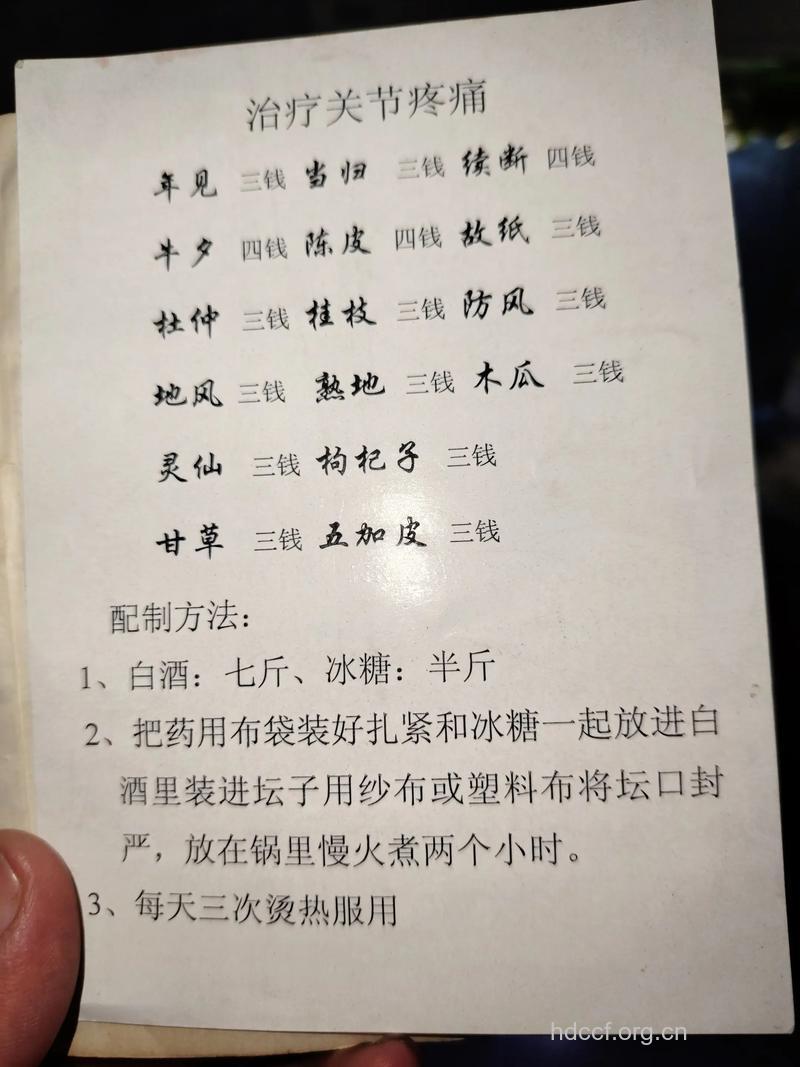 治疗关节疼痛
年见 三钱 当归 三钱 续断 四钱
牛夕 四钱 陈皮 四钱 故纸 三钱
杜仲 三钱 桂枝 三钱 防风 三钱
地风 三钱 熟地 三钱 木瓜 三钱
灵仙 三钱 枸杞子 三钱
甘草 三钱 五加皮 三钱
配制方法：
1、白酒：七斤、冰糖：半斤
2、把药用布袋装好扎紧和冰糖一起放进白
酒里装进坛子用纱布或塑料布将坛口封
严，放在锅里慢火煮两个小时。
3、每天三次烫热服用
hdccf.org.cn